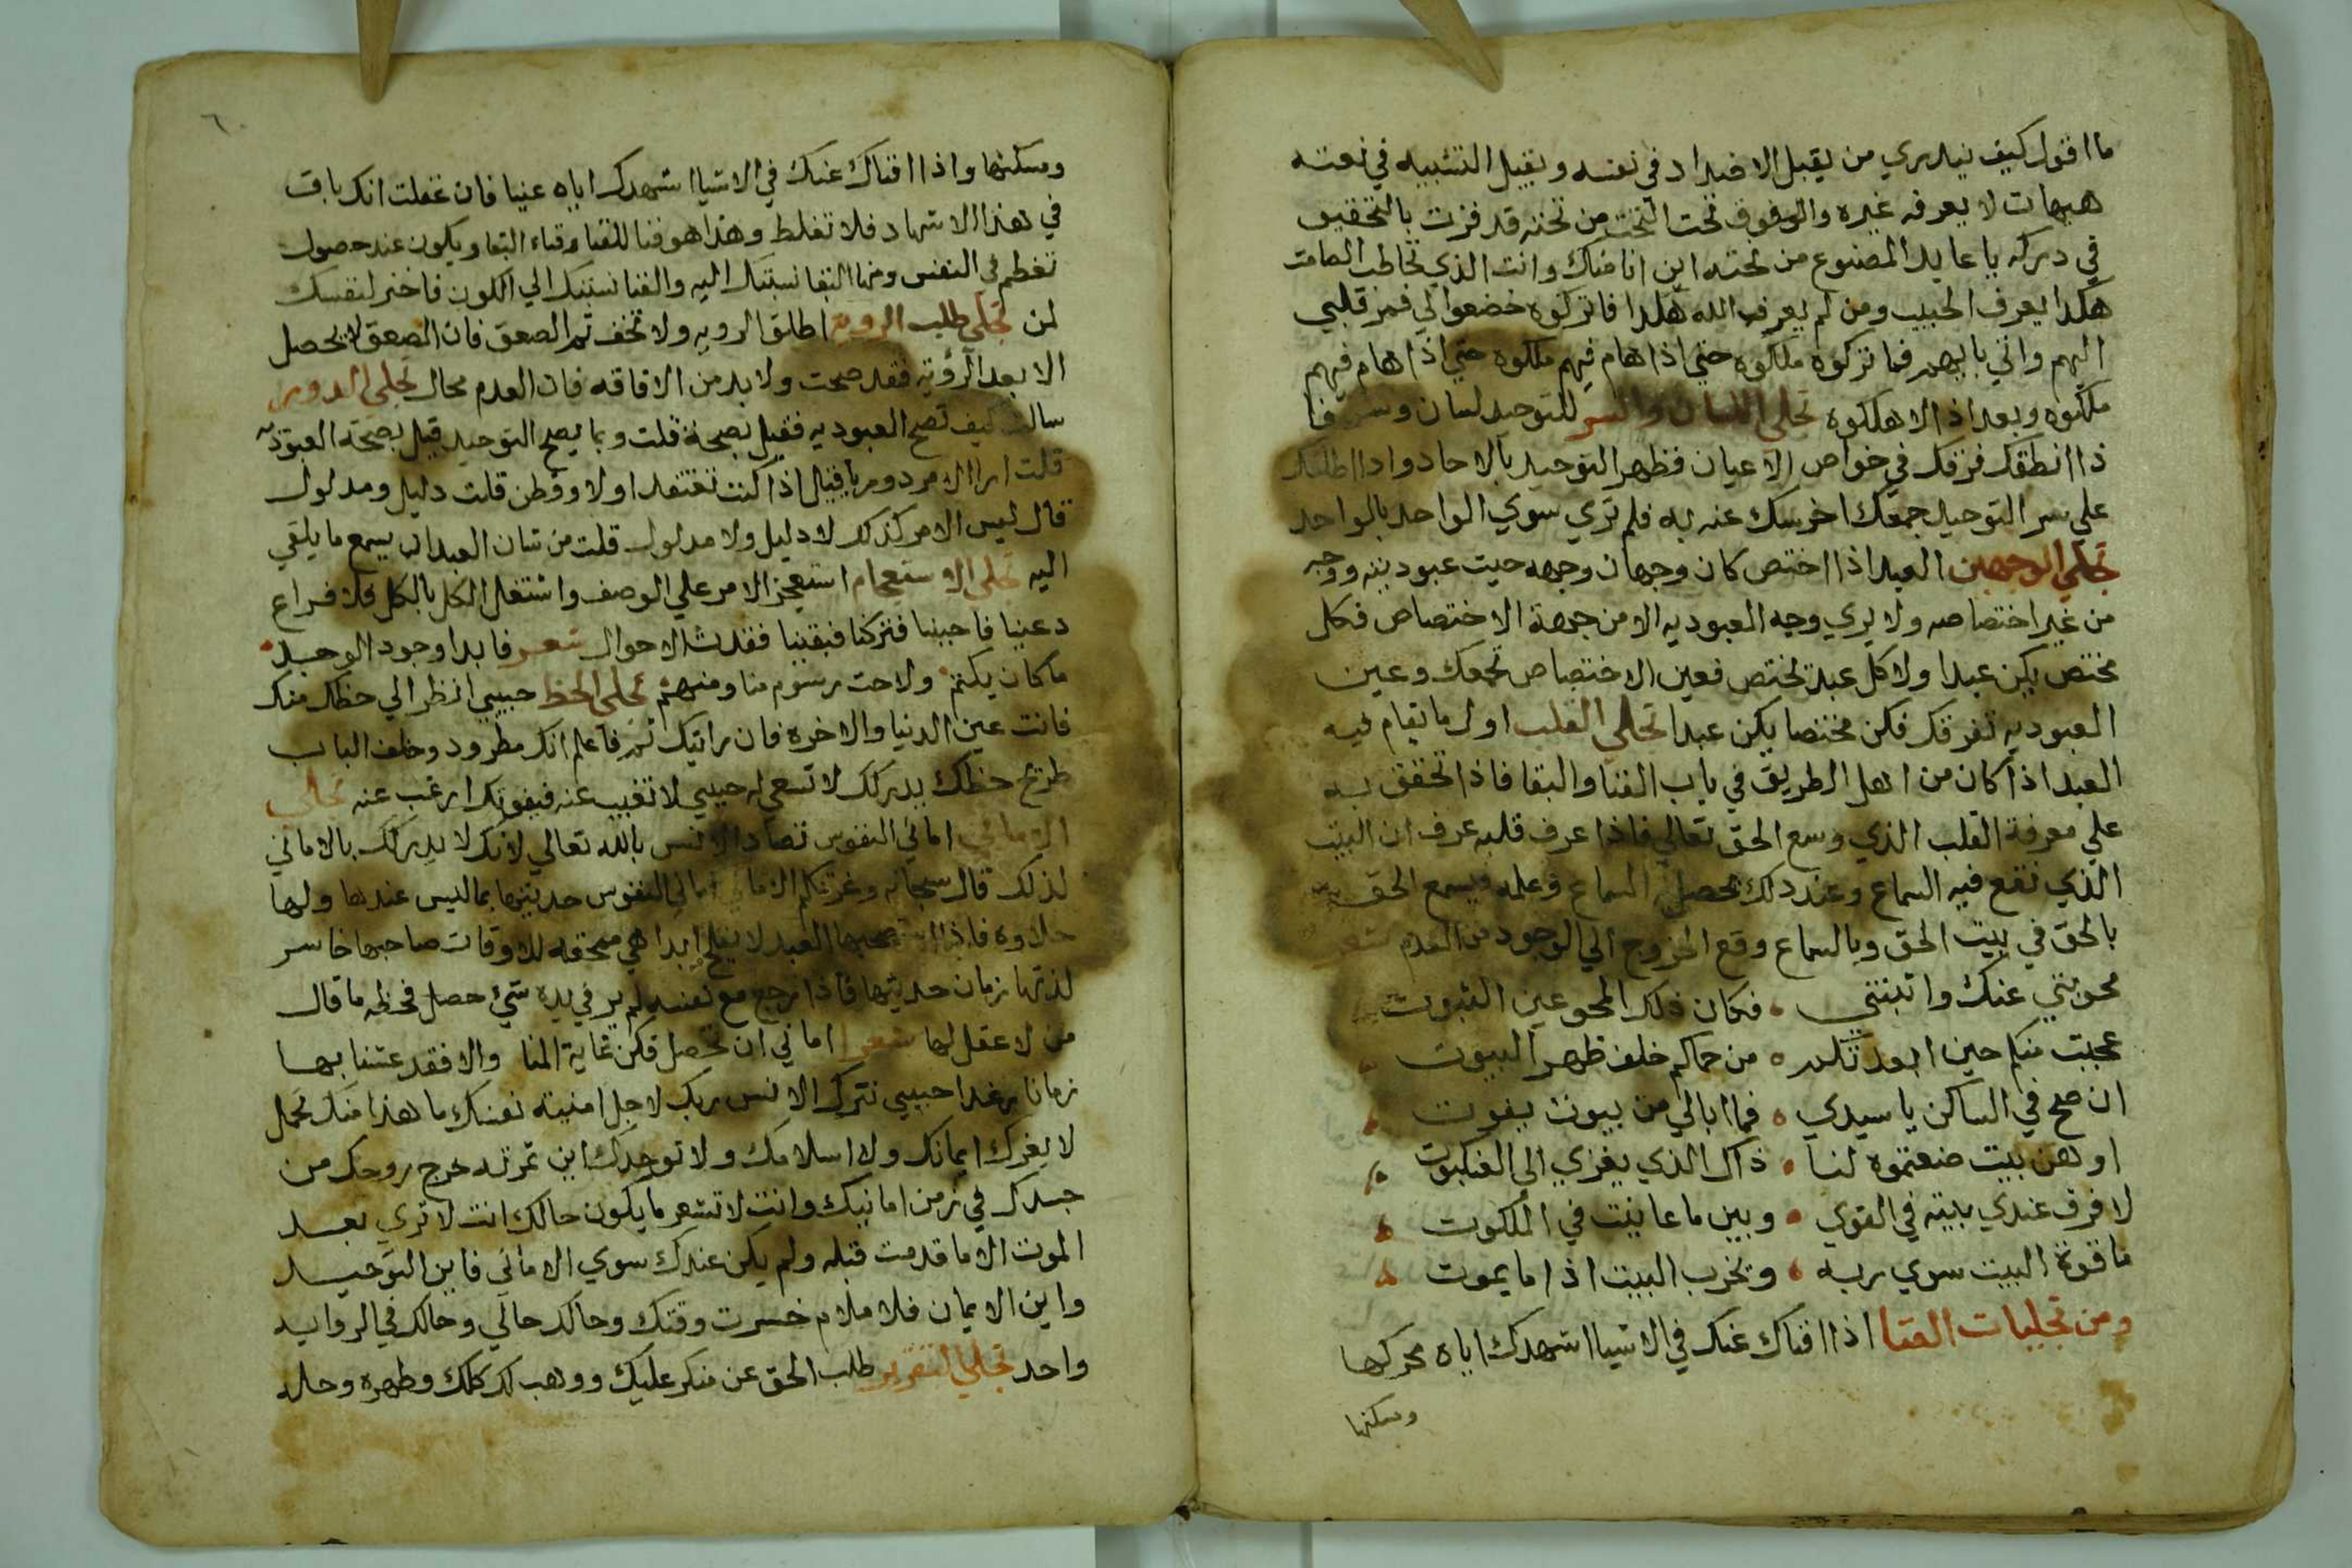 ما اقول كيف يدري من يقبل الاضداد في نفسه ويقبل التشبيه في نعته
هيهات لا يعرفه غيره والفوق تحت التحت من تحته قد فزت بالتحقيق
في دركه يا عابد المصنوع من نحته اين انا منك وانت الذي تخاطب الصامت
هكذا يعرف الحبيب ومن لم يعرف الله هكذا فاتركوه خضعوا لي فمر قلبي
اليهم واتي بابهم فما تركوه ملكوه حتي اذا هام فيهم ملكوه حتي اذا هام فيهم
ملكوه وبعد اذا الاهلكوه تجلي اللسان والسر للتوحيد لسان وسر فا
ذا انطقك فرقك في خواص الاعيان فظهر التوحيد بالاحاد واذا اطلعك
علي سر التوحيد جمعك اخرسك عنه به فلم تري سوي الواحد بالواحد
تجلي الوجهين العبد اذا اختص كان وجهان وجهه حيث عبوديته ووجه
من غير اختصاصه ولا يري وجه العبوديه الا من جهة الاختصاص فكل
مختص يكن عبدا ولا كل عبد تختص فعين الاختصاص تجمعك وعين
العبوديه تفرقك فكن مختصا يكن عبدا تجلي القلب اول ما يقام فيه
العبد اذا كان من اهل الطريق في باب الفنا والبقا فاذا تحقق به
علي معرفة القلب الذي وسع الحق تعالي فاذا عرف قلبه عرف ان البيت
الذي تقع فيه السماع وعند ذلك تحصل السماع وعلمه فيسمع الحق
بالحق في بيت الحق وبالسماع وقع الخروج الي الوجود من العدم شعر
محوتني عنك واثبتني فكان ذلك المحو عين الثبوت
عجبت منكم حين ابعدتكم من حماكم خلف ظهر البيوت
ان صح في الساكن يا سيدي فما ابالي من بيوت يفوت
اوهن بيت صنعتموه لنا ذاك الذي يغزي الي العنكبوت
لا فرق عندي بيته في القوي وبين ما عاينت في الملكوت
ما قوة البيت سوي ربه وتخرب البيت اذا ما يموت
ومن تجليات الفنا اذا افناك عنك في الاشيا اشهدك اياه محركها
ومسكنها
٦
ومسكنها واذا افناك عنك في الاشيا اشهدك اياه عينا فان غفلت انك باق
في هذا الاشهاد فلا تغلط وهذا هو فنا للقنا وقناء البقا ويكون عند حصول
تعظم في النفس ومنها البقا نسبتك اليه والفنا نسبتك الي الكون فاختر لنفسك
لمن تجلي طلب الرويه اطلق الرويه ولا تخف ثم الصعق فان الصعق لا يحصل
الا بعد الرؤيه فقد صحت ولا بد من الافاقه فان العدم محال تجلي الدور
سالت كيف تصح العبوديه فقيل بصحة قلت وبما يصح التوحيد قيل بصحة العبوديه
قلت ارا الامر دوريا فقال اذا كنت تعتقد اولا ووطن قلت دليل ومدلول
قال ليس الامر كذلك لا دليل ولا مدلول قلت من شان العبد ان يسمع ما يلقي
اليه تجلي الاستعجام استعجز الامر علي الوصف واشتغل الكل بالكل فلا فراغ
دعينا فاجبنا فتركنا فبقينا فقدت الاحوال شعر فابدا وجود الوجد
ما كان يكتم ولاحت رسوم منا ومنهم تجلي الحظ حبيبي انظر الي حظك منك
فانت عين الدنيا والاخره فان رايتك ثم فاعلم انك مطرود وخلف الباب
طرح حظك يدركك لا تسعي له حبيبي لا تغيب عنه فيفوتك ارغب عنه تجلي
الاماني اماني النفوس تضاد الانس بالله تعالي لانك لا يدركك بالاماني
لذلك قال سبحانه وغرتكم الاماني اماني النفوس حديثها بما ليس عندها ولها
حلاوه فاذا استصحبها العبد لا يفلح ابدا هي ممحقه للاوقات صاحبها خاسر
لذتها زمان حديثها فاذا رجع مع نفسه لم ير في يده شيء حصل فحظه ما قال
من لا عقل لها شعر اماني ان تحصل فكن غاية المنا والا فقد عشنا بها
زمانا رغدا حبيبي تترك الانس بربك لاجل امنيته نفسك ما هذا منك تجمل
لا يغرك ايمانك ولا اسلامك ولا توحيدك اين ثمرته خرج روحك من
جسدك في زمن امانيك وانت لا تشعر ما يكون حالك انت لا تري بعد
الموت الا ما قدمت قبله ولم يكن عندك سوي الاماني فاين التوحيد
واين الايمان فلا ملام خسرت وقتك وحالك حالي وحالك في الروايه
واحد تجلي التقرير طلب الحق عن منكر عليك ووهب لك كلك وطهره وحله